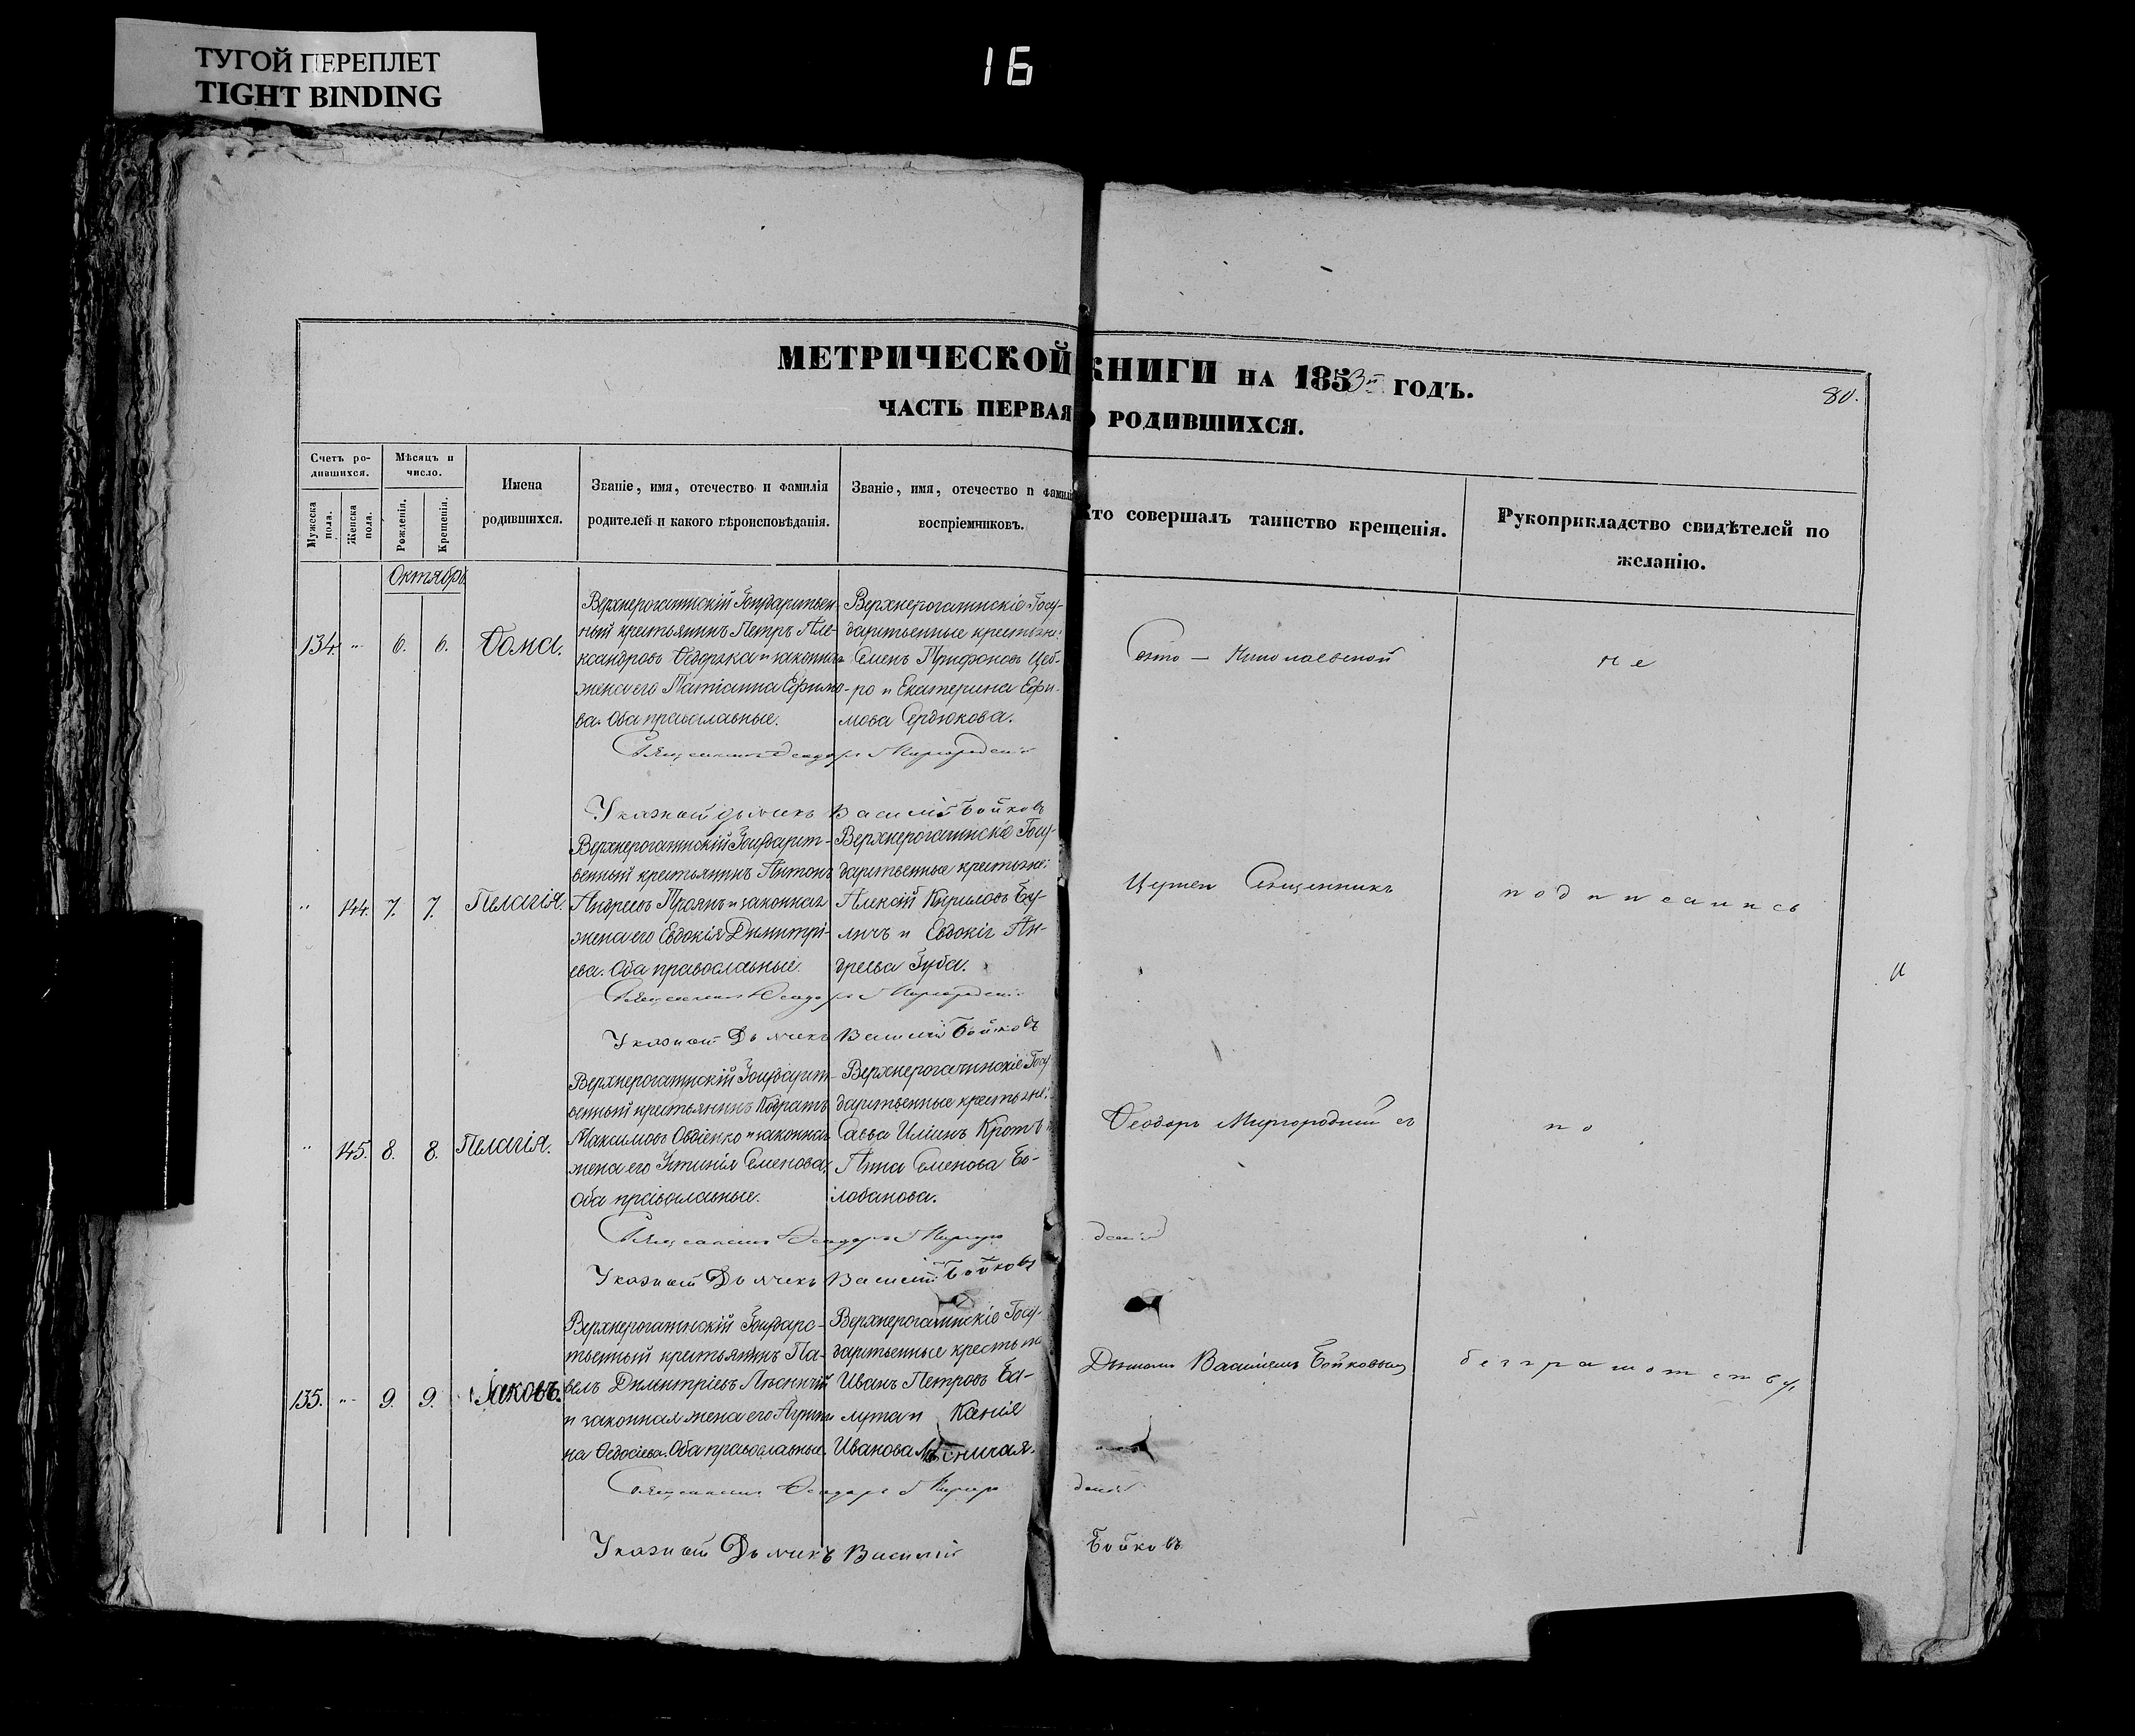 ТУГОЙ ПЕРЕПЛЕТ
TIGHT BINDING
16
МЕТРИЧЕСКОЙ КНИГИ НА 1853й ГОДЪ.
80.
ЧАСТЬ ПЕРВАЯ О РОДИВШИХСЯ.
Счетъ ро-
дившихся.
Мужеска пола.
Женска пола.
Мѣсяцъ и
число.
Рожденія.
Крещенія.
Имена
родившихся.
Званіе, имя, отечество и фамилія
родителей и какого вѣроисповѣданія.
Званіе, имя, отечество и фамилія
воспріемниковъ.
Кто совершалъ таинство крещенія.
Рукоприкладство свидѣтелей по
желанію.
Октябрь
134. " 6. 6. Ѳома.
Верхнерогачинскій Государствен-
ный крестьянинъ Петръ Але-
ксандровъ Ѳедорака и законная
жена его Татіанна Ефимо-
ва. Оба православные.
Верхнерогачинскіе Госу-
дарственные крестьяне:
Семенъ Трифоновъ Цеб-
ро и Екатерина Ефи-
мова Сердюкова.
Свято-Николаевской
не
Священникъ Ѳеодоръ Миргородскій
Указный дьячекъ Василій Бойковъ
" 144. 7. 7. Пелагія.
Верхнерогачинскій Государст-
венный крестьянинъ Антонъ
Андреевъ Троянъ и законная
жена его Евдокія Димитрі-
ева. Оба православные.
Верхнерогачинскіе Госу-
дарственные крестьяне:
Алексѣй Кириловъ Бу-
личъ и Евдокія Ан-
дреева Губа.
Церкви Священникъ
подписались
Священникъ Ѳеодоръ Миргородскій
Указный Дьячекъ Василій Бойковъ
" 145. 8. 8. Пелагія.
Верхнерогачинскій Государст-
венный крестьянинъ Кодратъ
Максимовъ Овдіенко и законная
жена его Устинія Семенова.
Оба православные.
Верхнерогачинскіе Госу-
дарственные крестьяне:
Савва Иліинъ Кротъ и
Анна Семенова Бо-
лобанова.
Ѳеодоръ Миргородскій съ
по
Священникъ Ѳеодоръ Миргородскій
Указный Дьячекъ Василій Бойковъ
135. " 9. 9. Іаковъ.
Верхнерогачинскій Государс-
твенный крестьянинъ Па-
велъ Димитріевъ Лѣсничій
и законная жена его Агрипи
на Ѳедосіева. Оба православные.
Верхнерогачинскіе Госу-
дарственные крестьяне
Иванъ Петровъ Ба-
лута и Ксенія
Иванова Лѣсничая.
Дьячкомъ Василіемъ Бойковымъ
безграмотству
Священникъ Ѳеодоръ Миргородскій
Указный Дьячекъ Василій Бойковъ